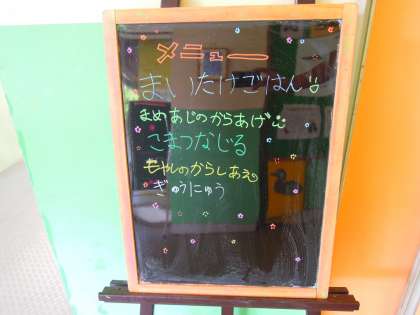 メニュー
まいたけごはん
まめあじのからあげ
こまつなじる
もやしのからしあえ
ぎゅうにゅう